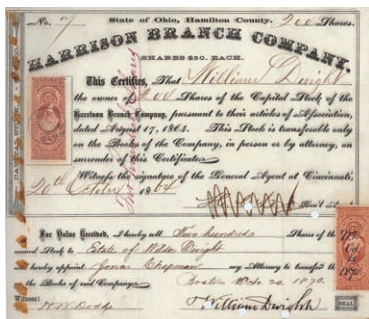 No. 7 State of Ohio, Hamilton County. 200 Shares.
HARRISON BRANCH COMPANY.
SHARES $50, EACH.
This Certifies, That William Dwight
the owner of 200 Shares of the Capital Stock of the
Harrison Branch Company, pursuant to their articles of Association,
dated August 17, 1864. This Stock is transferable only
on the Books of the Company, in person or by attorney, on
surrender of this Certificate.
Witness the signature of the General Agent at Cincinnati,
20th October 1864
Gen'l Agt.
CAPITAL STOCK
For Value Received, I hereby sell Two hundred Shares of the
named Stock to Estate of Dwight
hereby appoint Jonas Chapman my Attorney to transfer the
the Books of said Company.
Boston Oct. 20. 1870.
Witness:
W. W. Dodd
William Dwight
SEAL